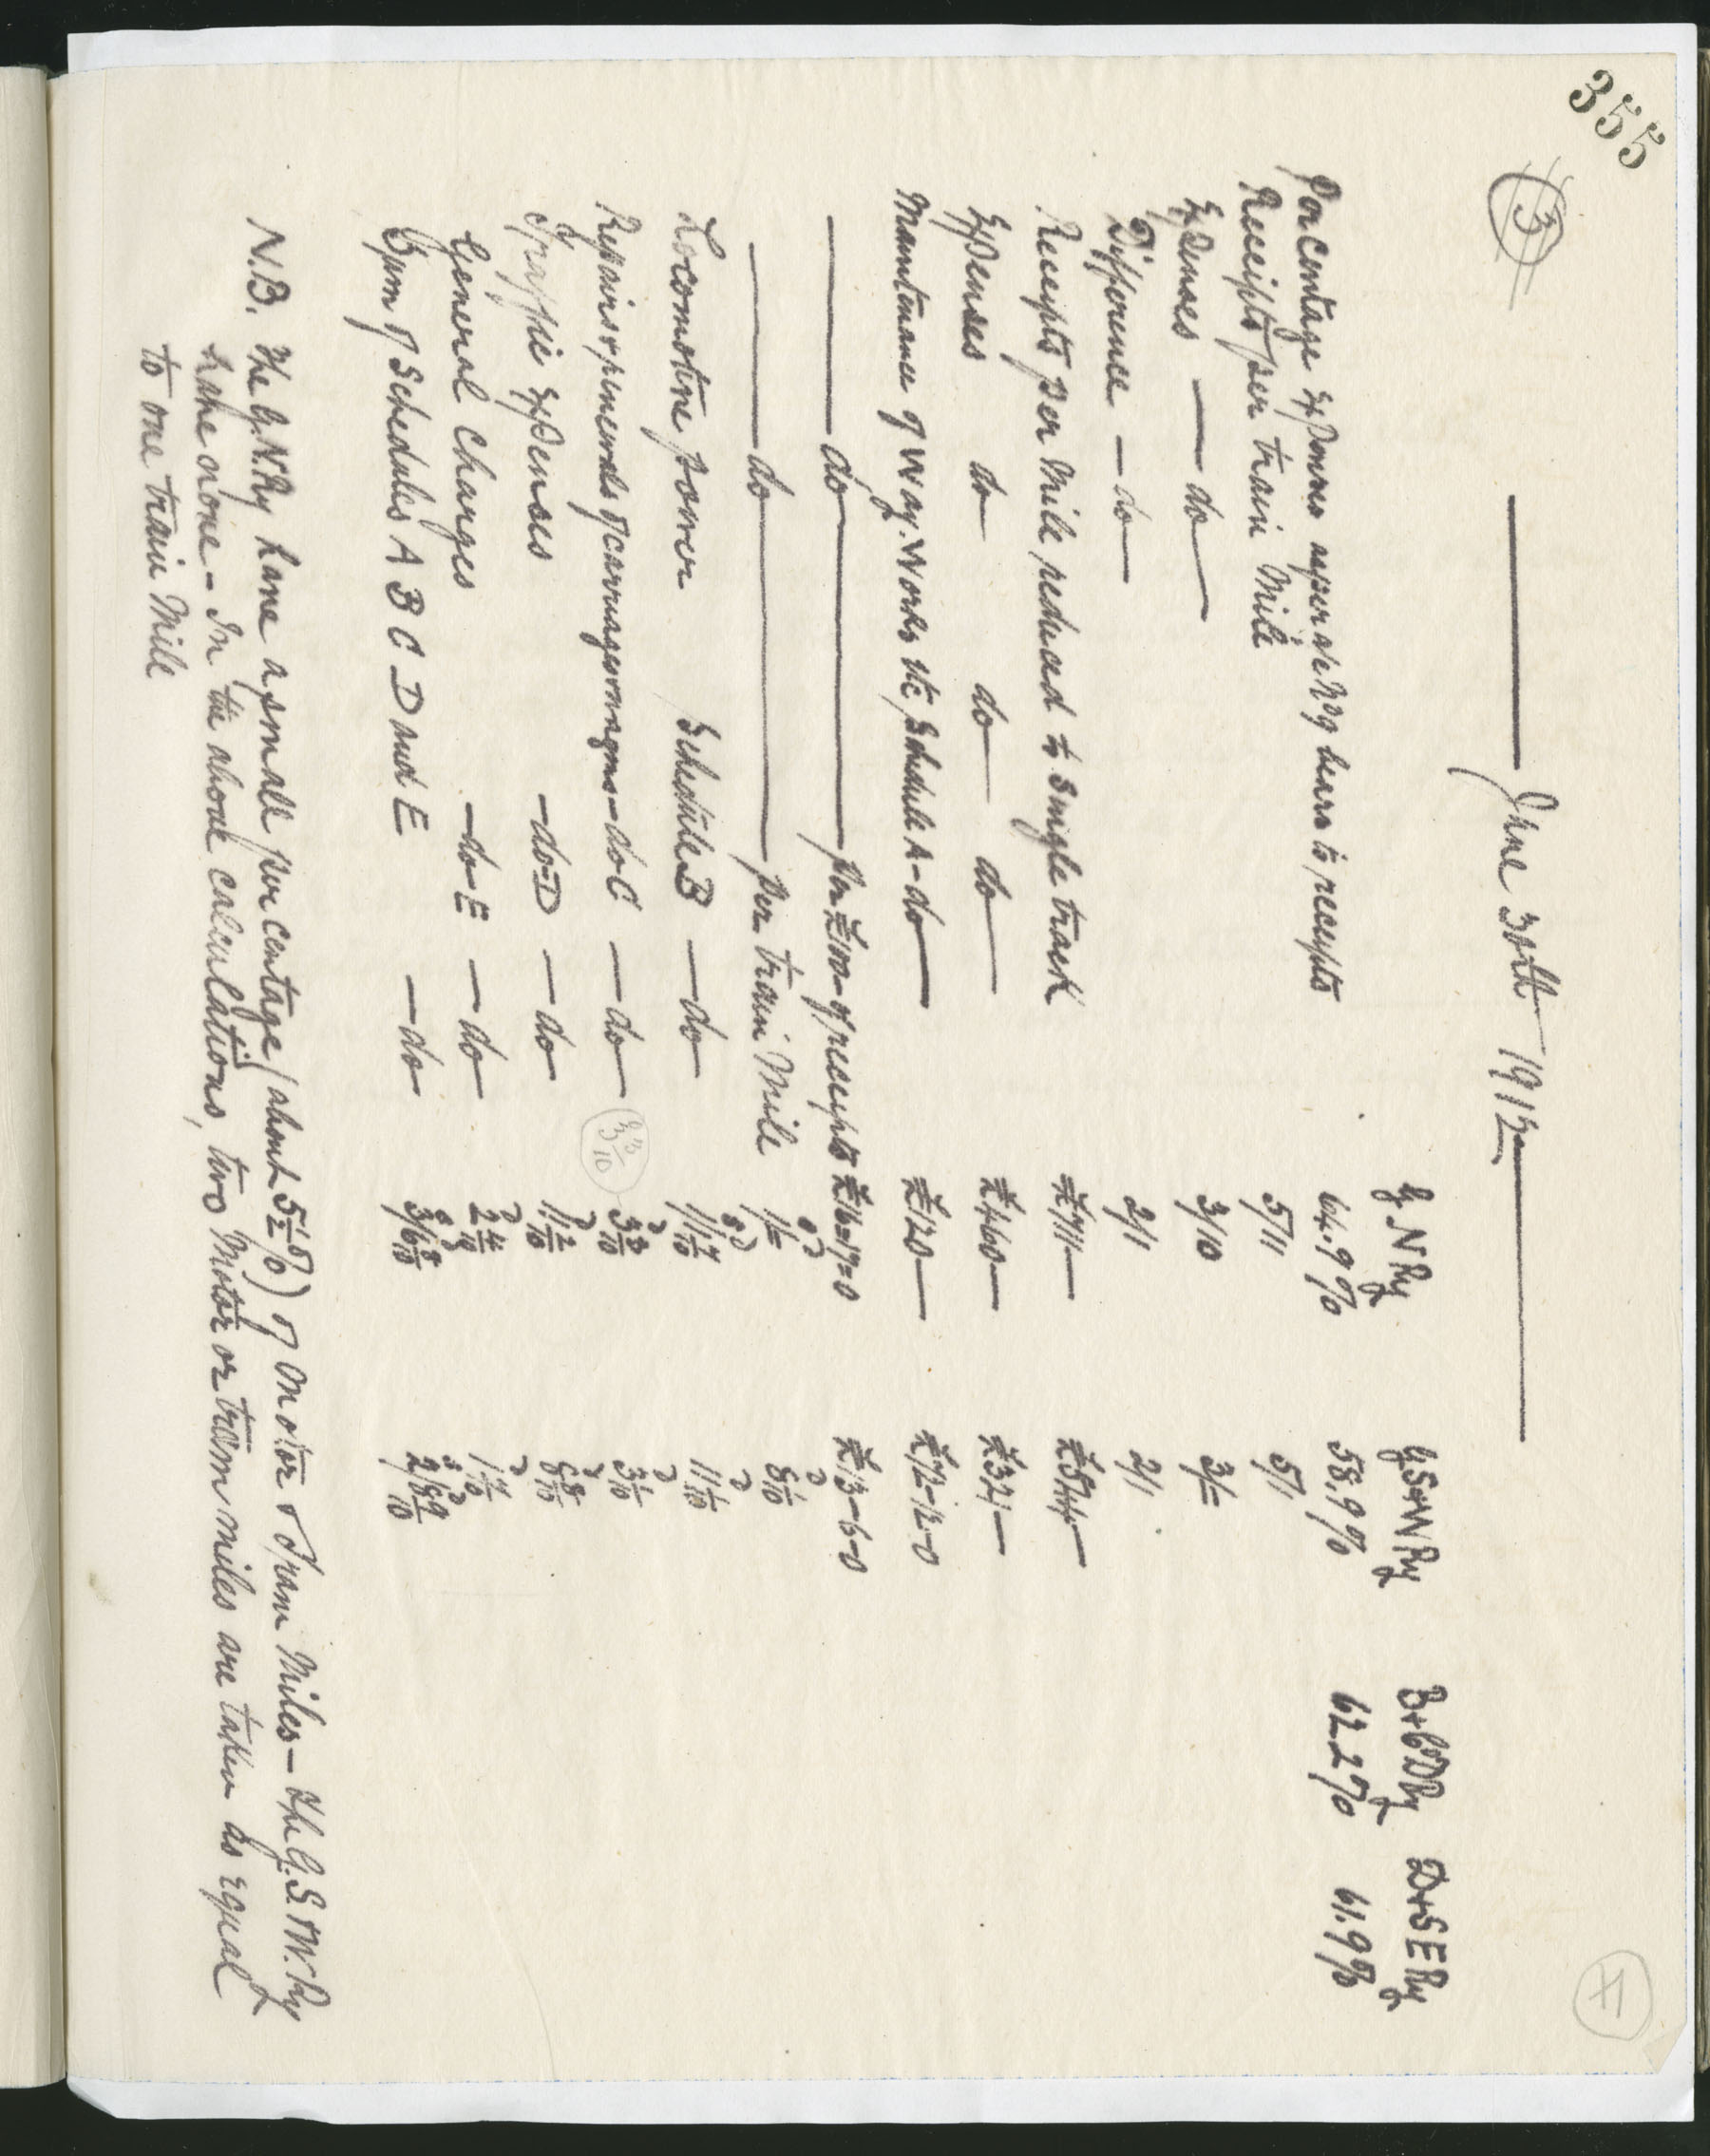 355
3
II
June 30th 1912
G.N.Ry G.S&W Ry B&CD Ry D&SE Ry
Percentage Expenses as per a/c No 9 bears to receipts 64.9% 58.9% 62.2% 61.9%
Receipts per train Mile 5/11 5/1
Expenses — do — 3/10 3/=
Difference — do — 2/1 2/1
Receipts per Mile reduced to Single track £711— £544—
Expenses do do do £460— £321—
Maintenance of Way. Works etc Schedule A - do — £120— £72-12-0
— do — Per £100- of receipts £16=17=0 £13-6-0
— do — Per train Mile 1/= 8 1/10
Locomotive power Schedule B — do 1/1 7/10 11 1/10
Repairs & renewals of carriages wagons - do C — do 3 3/10 3 3/10 3 1/10
Traffic Expenses - do D — do 11 2/10 8 8/10
General Charges - do E — do 2 4/10 1 7/10
Sum of Schedules A B C D and E — do 3/6 8/10 2/8 9/10
N.B. The G.N.Ry have a small per centage (about 5½%) of Motor & Tram Miles — the G.S.&W. Ry
have none — In the above calculations, two Motor or tram miles are taken as equal
to one train Mile